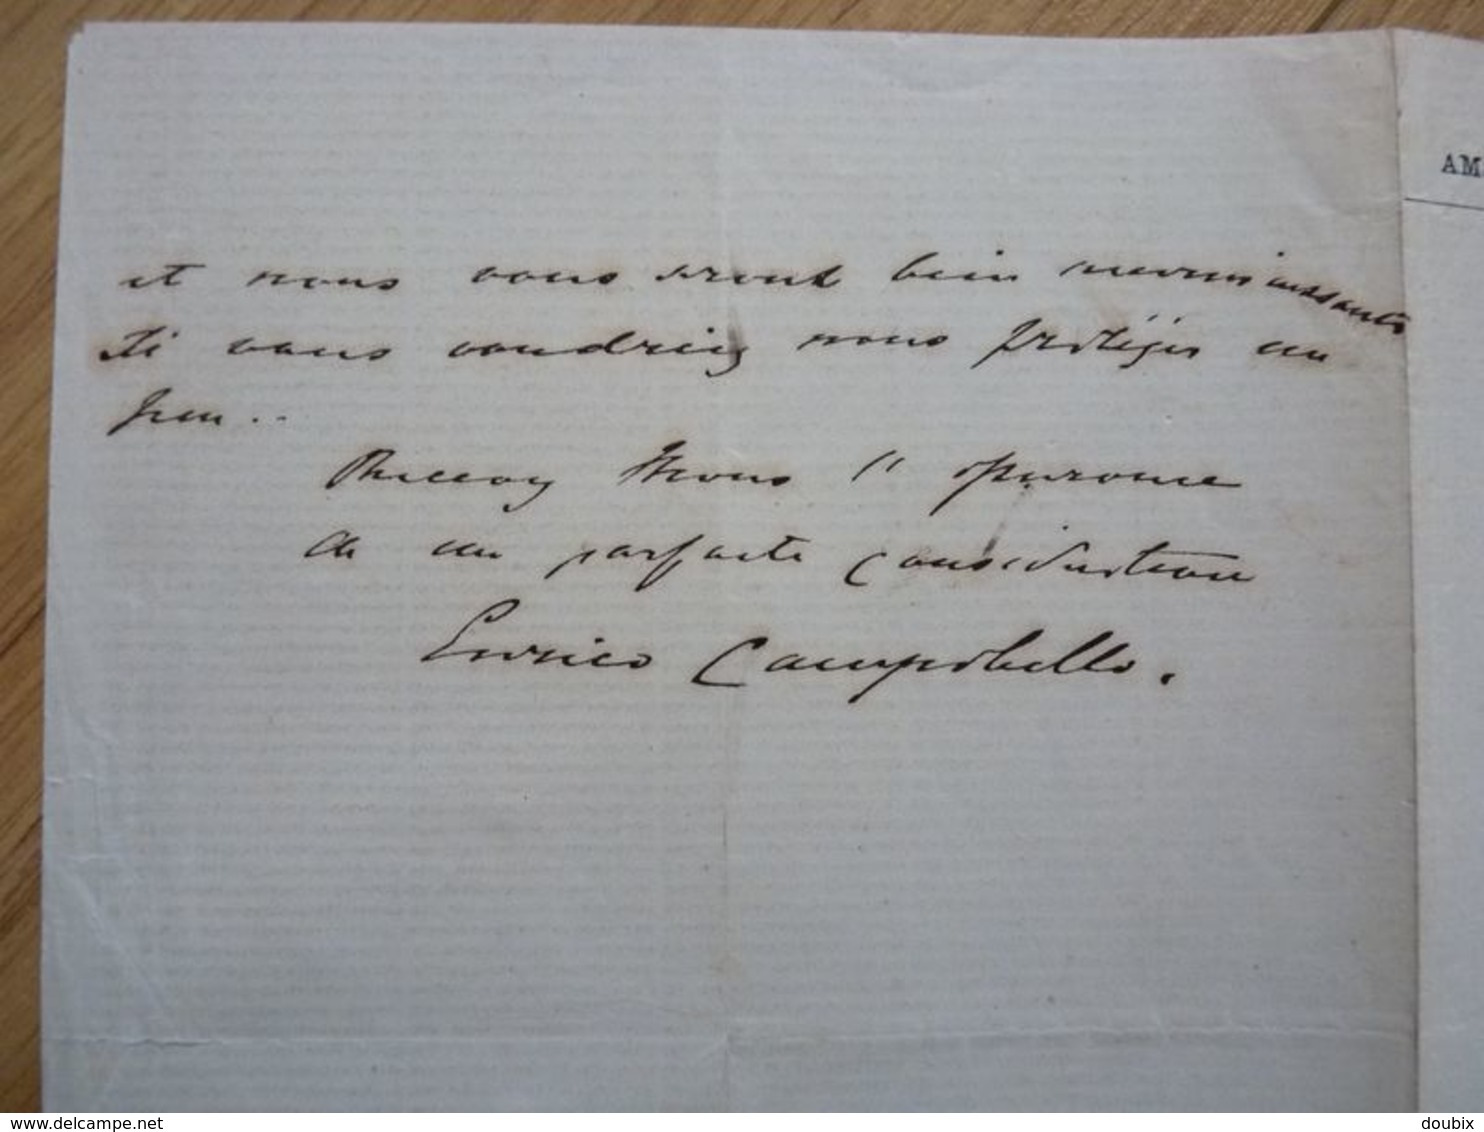 AM
et nous vous seront bien reconnaissants
si vous voudriez nous protéger un
peu..
Recevez Mons l'
de un parfaite consideration
Enrico Campobello.
www.delcampe.net
doubix